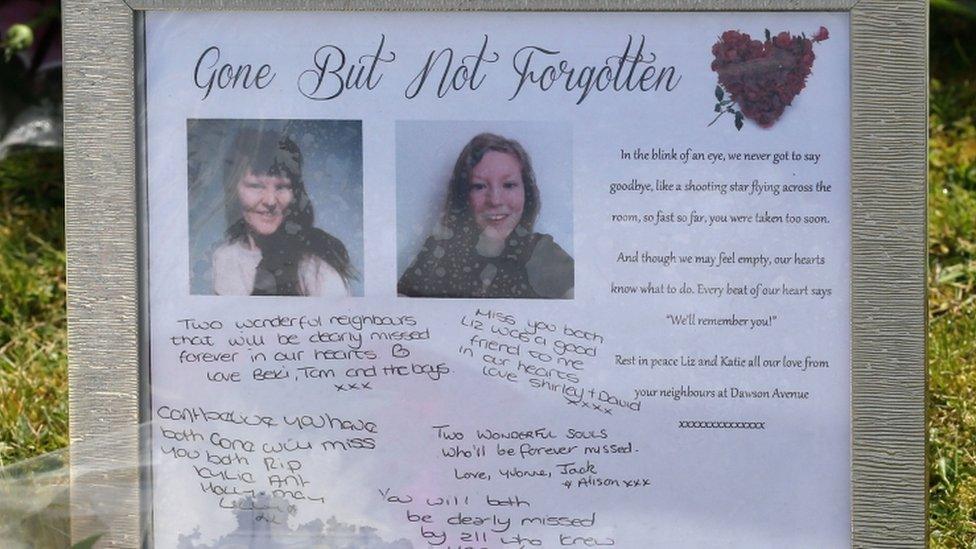 Gone But Not Forgotten
In the blink of an eye, we never got to say
goodbye, like a shooting star flying across the
room, so fast so far, you were taken too soon.
And though we may feel empty, our hearts
know what to do. Every beat of our heart says
"We'll remember you!"
Rest in peace Liz and Katie all our love from
your neighbours at Dawson Avenue
xxxxxxxxxxxxxx
Two wonderful neighbours
that will be dearly missed
forever in our hearts.
Love Beki, Tom and the boys.
xxx
Miss you both
Liz was a good
friend to me
in our hearts
love Shirley + David
xxxx
Cant believe you have
both gone will miss
you both RIP
Kylie Ant
Holly-may
Two wonderful souls
who'll be forever missed.
Love, Yvonne, Jack
& Alison xxx
You will both
be dearly missed
by all who knew